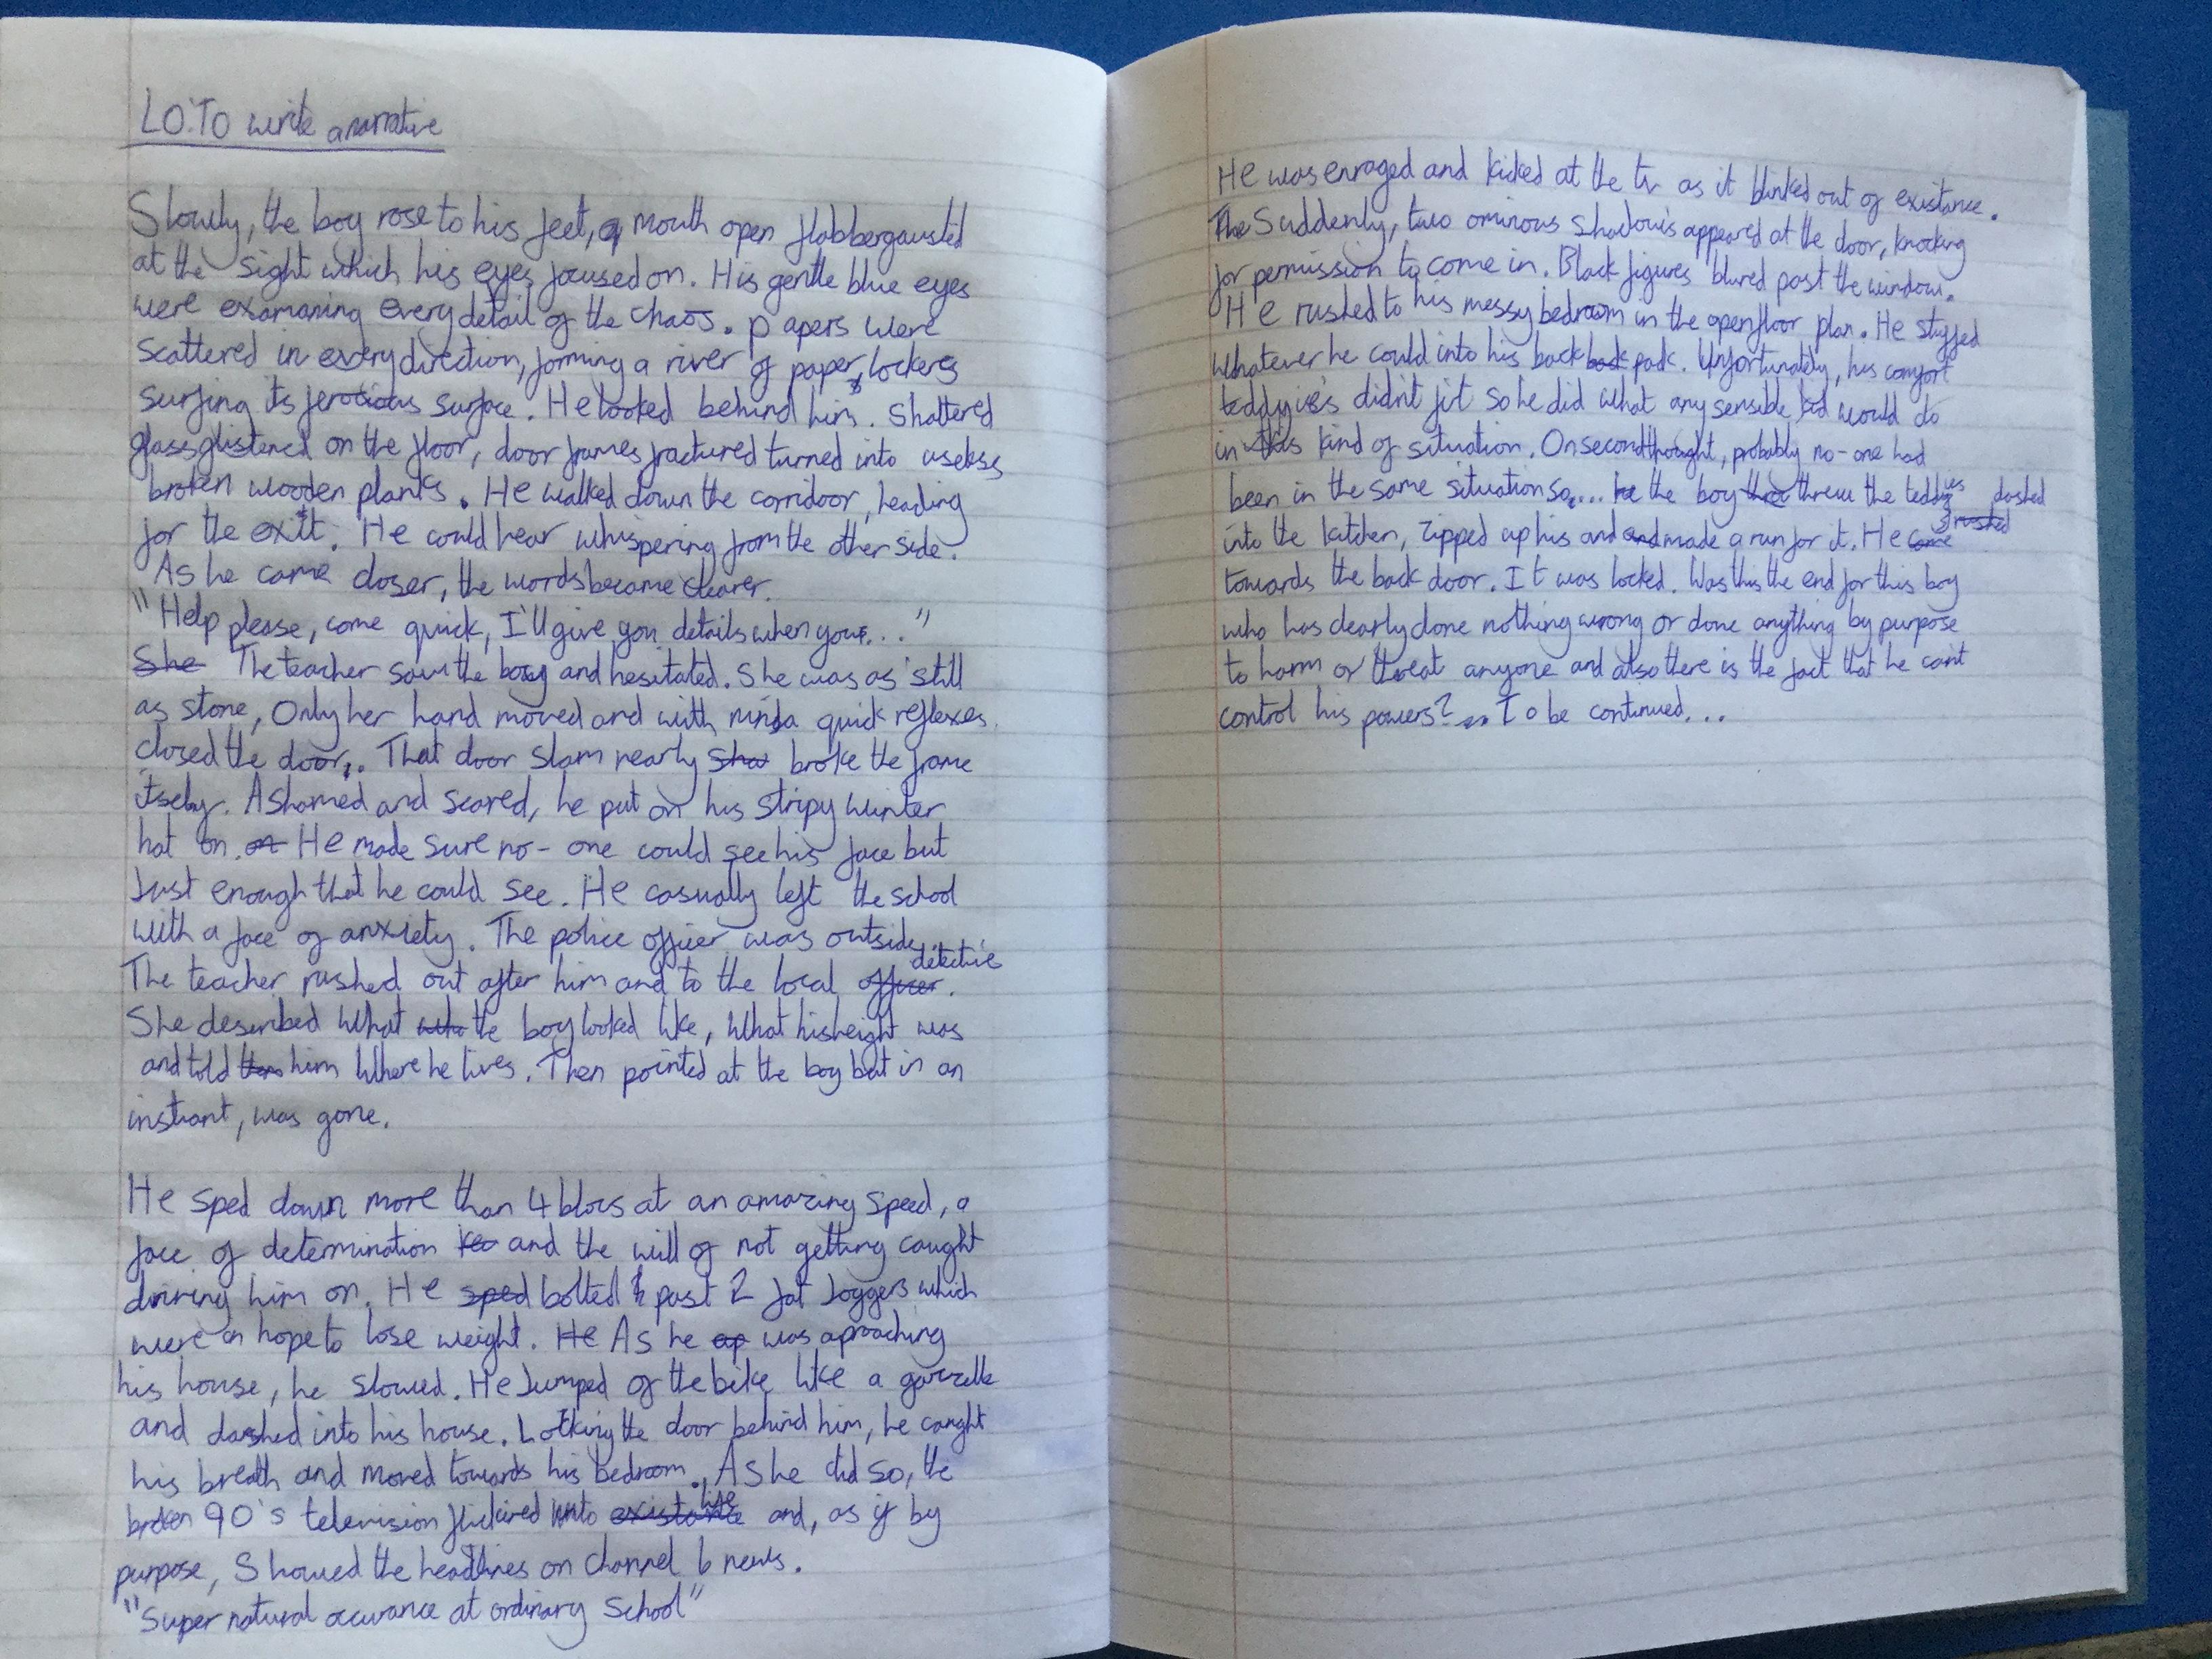 LO: TO write a narrative
Slowly, the boy rose to his feet, mouth open flabbergausted
at the sight which his eyes focused on. His gentle blue eyes
were examaning every detail of the chaos. papers were
scattered in every direction, forming a river of paper, lockers
surfing its ferocious surface. He looked behind him. Shattered
glass glistened on the floor, door frames fractured turned into useless
broken wooden planks. He walked down the corridoor, heading
for the exit. He could hear whispering from the other side.
As he came closer, the words became clearer.
"Help please, come quick, I'll give you details when you..."
She The teacher saw the boy and hesitated. She was as still
as stone, Only her hand moved and with ninja quick reflexes
closed the door. That door slam nearly sha broke the frame
itself. Ashamed and scared, he put on his stripy winter
hat on. on He made sure no-one could see his face but
Just enough that he could see. He casually left the school
with a face of anxiety. The police officer was outside.
The teacher rushed out after him and to the local officer detective.
She described what who the boy looked like, What his height was
and told them him Where he lives. Then pointed at the boy but in an
instant, was gone.
He sped down more than 4 blocs at an amazing speed, a
face of determination and the will of not getting caught
driving him on. He sped bolted past 2 fat Joggers which
were on hope to lose weight. He As he ap was aproaching
his house, he slowed. He Jumped of the bike like a gazzelle
and dashed into his house. Locking the door behind him, he caught
his breath and moved towards his bedroom. As he did so, the
broken 90's television flickired into existance life and, as if by
purpose, Showed the headlines on channel 6 news.
"Super natural occurance at ordinary School"
He was enraged and kicked at the tv as it blinked out of existance.
The Suddenly, two ominous shadows appeared at the door, knocking
for permission to come in. Black figures blured past the window.
He rushed to his messy bedroom in the open floor plan. He stuffed
whatever he could into his back back pack. Unfortunately, his comfort
teddyies didn't fit so he did what any sensible kid would do
in this kind of situation. On second thought, probably no-one had
been in the same situation so... he the boy threw the teddies
into the kitchen, zipped up his and and made a run for it. He came rushed dashed
towards the back door. It was locked. Was this the end for this boy
who has clearly done nothing wrong or done anything by purpose
to harm or threat anyone and also there is the fact that he cant
control his powers? To be continued...